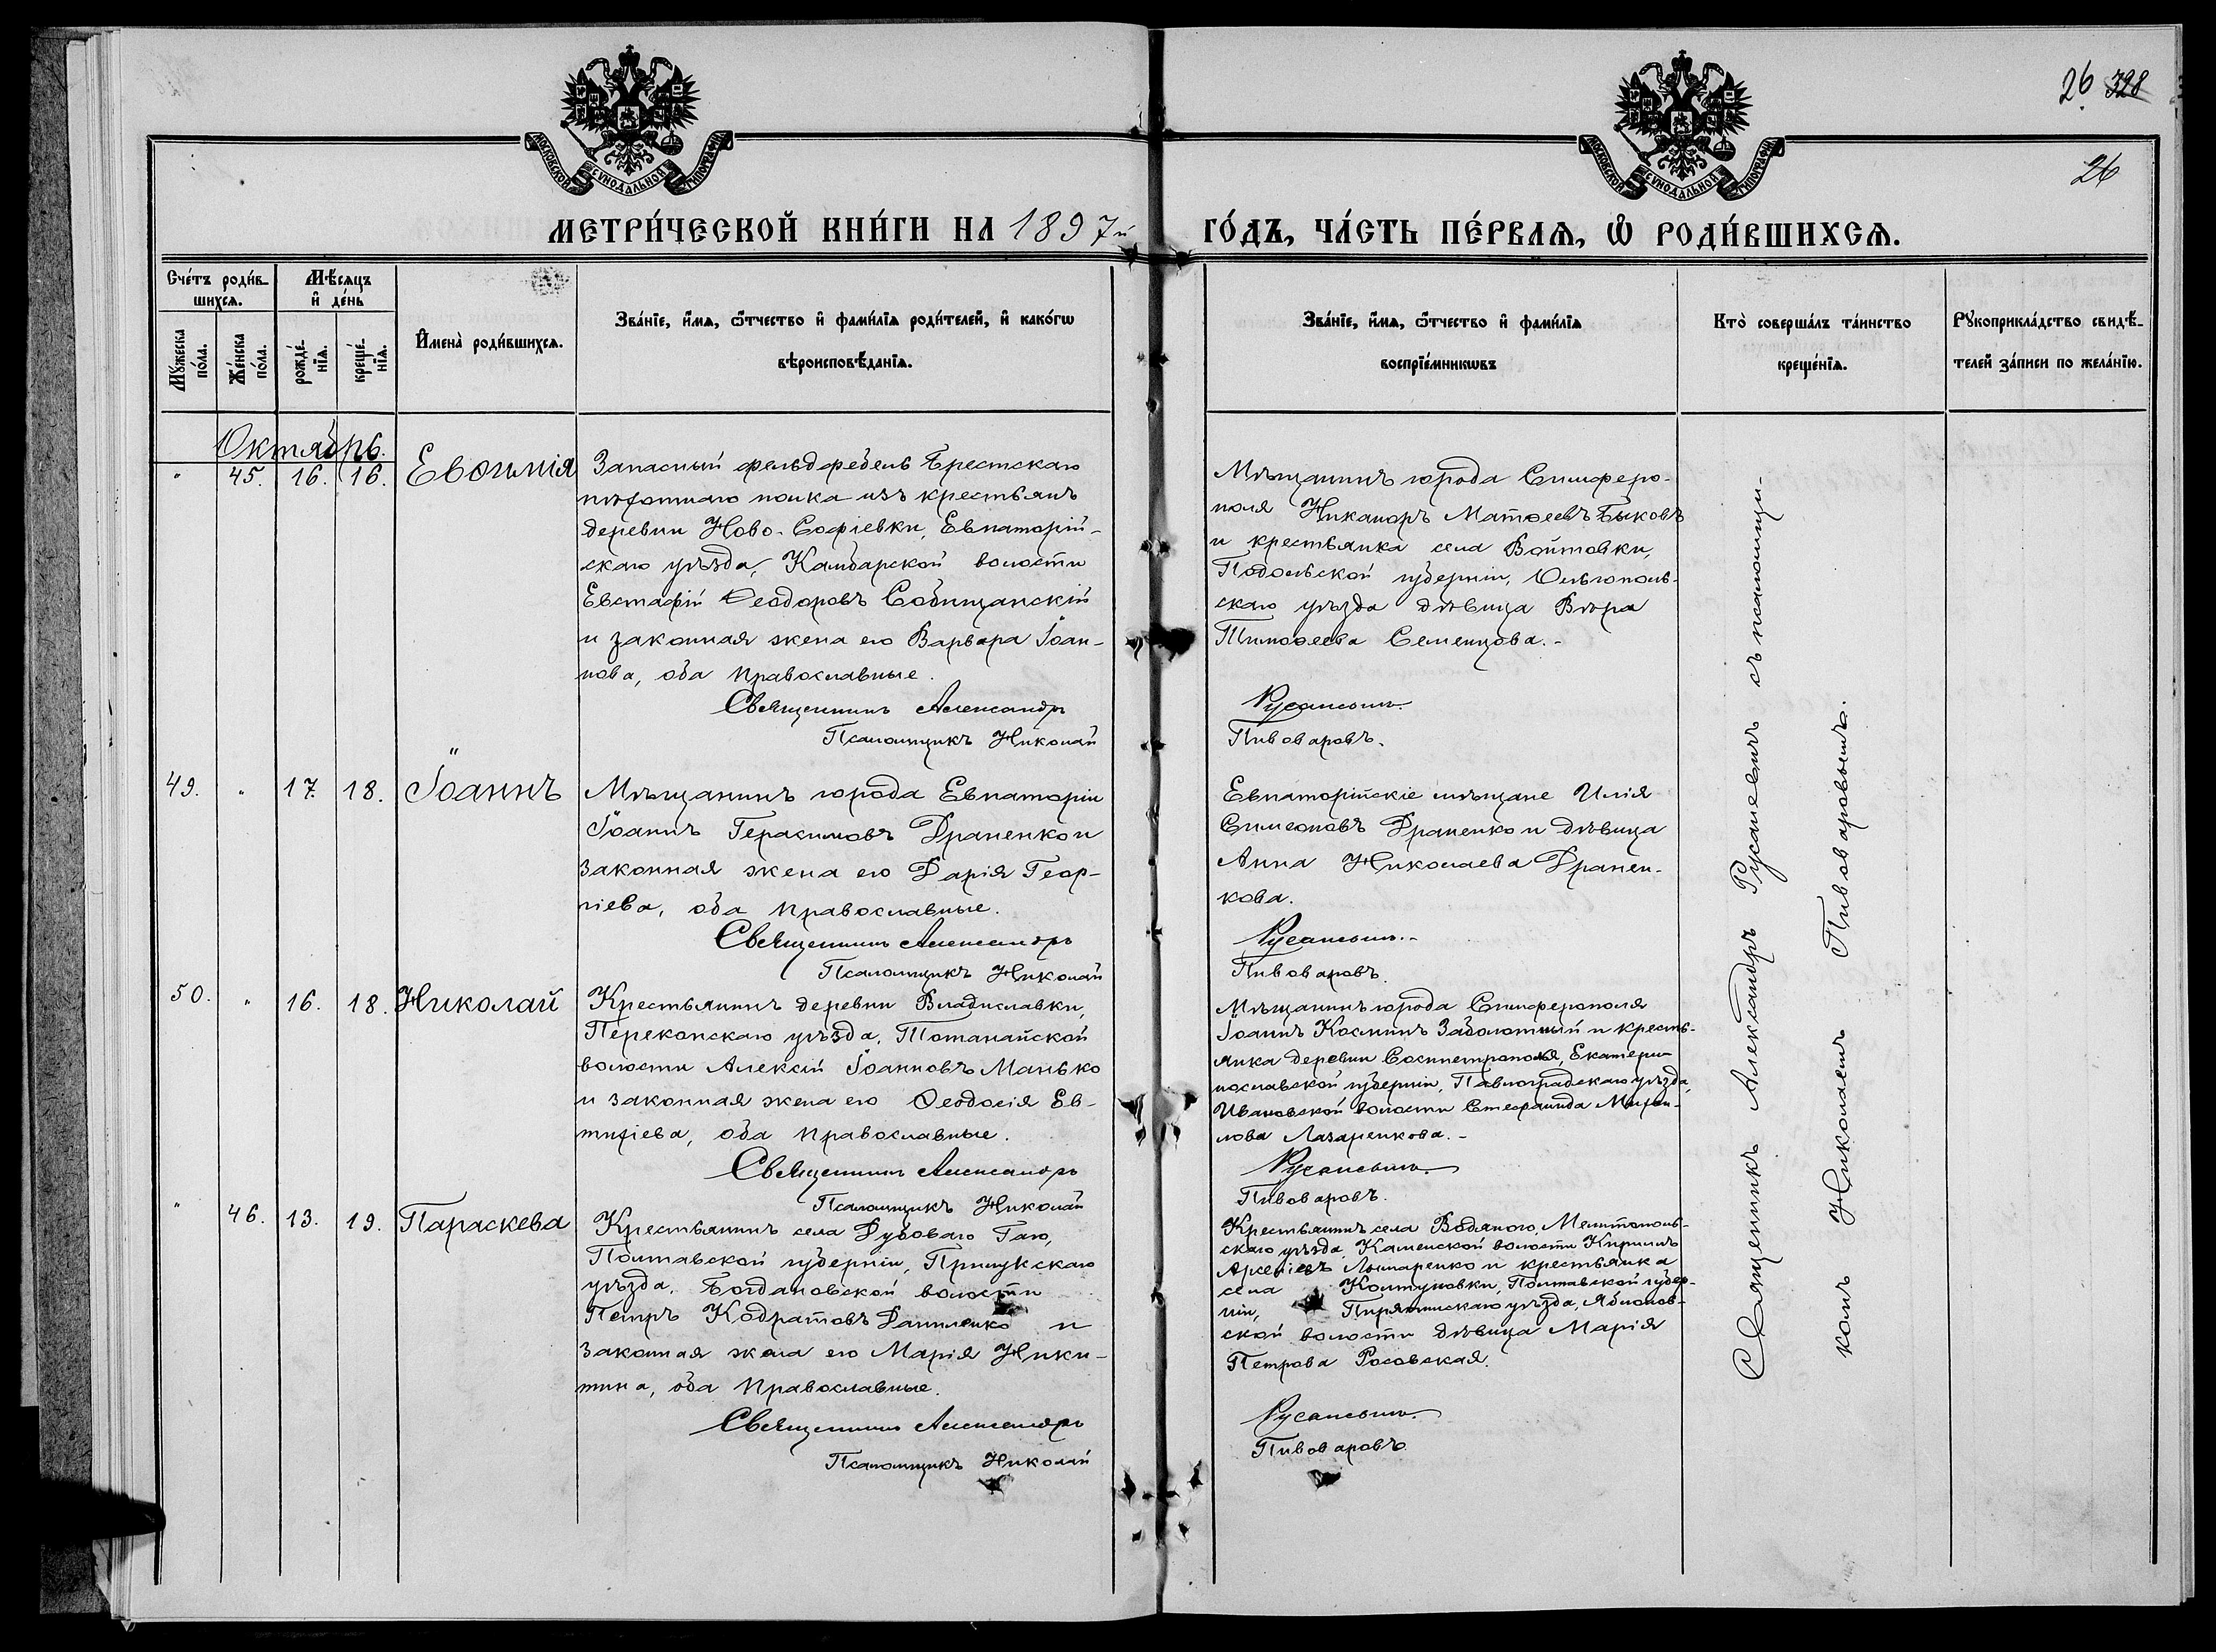 26 328
26
МОСКОВСКОЙ СѴНОДАЛЬНОЙ ТИПОГРАФІИ
МОСКОВСКОЙ СѴНОДАЛЬНОЙ ТИПОГРАФІИ
МЕТРИ́ЧЕСКОЙ КНИ́ГИ НА 1897й
ГО́ДЪ, ЧА́СТЬ ПЕ́РВАѦ, Ѡ҆ РОДИ́ВШИХСѦ.
Сче́тъ роди́в-
шихсѧ.
Мѣ́сѧцъ
и҆ де́нь
Мꙋ́жеска
по́ла.
Же́нска
по́ла.
рожде́-
нїѧ.
креще́-
нїѧ.
И҆мена̀ роди́вшихсѧ.
Зва́нїе, и҆́мѧ, ѻ҆́тчество и҆ фами́лїѧ роди́телей, и҆ како́гѡ
вѣроисповѣ́данїѧ.
Зва́нїе, и҆́мѧ, ѻ҆́тчество и҆ фами́лїѧ
воспрїе́мникѡвъ
Кто̀ соверша́лъ та́инство
креще́нїѧ.
Рꙋкоприкла́дство свидѣ́-
телей за́писи по жела́нїю.
Октябрь.
" 45. 16. 16. Евѳимія
Запасный фельдфебель Брестскаго
пѣхотнаго полка изъ крестьянъ
деревни Ново-Софіевки, Евпаторій-
скаго уѣзда, Камбарской волости
Евстафій Ѳеодоровъ Собищанскій
и законная жена его Варвара Іоан-
нова, оба православные.
Священникъ Александръ
Псаломщикъ Николай
Мѣщанинъ города Симферо-
поля Никаноръ Матѳеевъ Быковъ
и крестьянка села Войтовки,
Подольской губерніи, Ольгополь-
скаго уѣзда дѣвица Вѣра
Тимоѳеева Семенцова.-
Русаневичъ.
Пивоваровъ.
49. " 17. 18. Іоаннъ
Мѣщанинъ города Евпаторіи
Іоаннъ Герасимовъ Драненко и
законная жена его Дарія Геор-
гіева, оба православные.
Священникъ Александръ
Псаломщикъ Николай
Евпаторійскіе мѣщане Илія
Симеоновъ Драненко и дѣвица
Анна Николаева Дранен-
кова.
Русаневичъ.-
Пивоваровъ.
50. " 16. 18. Николай
Крестьянинъ деревни Владиславки,
Перекопскаго уѣзда, Тотанайской
волости Алексій Іоанновъ Манько
и законная жена его Ѳеодосія Ев-
тихіева, оба православные.
Священникъ Александръ
Псаломщикъ Николай
Мѣщанинъ города Симферополя
Іоаннъ Косминъ Заболотный и кресть-
янка деревни Екатери-
нославской губерніи, Павлоградскаго уѣзда,
Ивановской волости Стефанида
Лазаренкова.-
Русаневичъ.
Пивоваровъ.
" 46. 13. 19. Параскева
Крестьянинъ села Дубоваго Гаю,
Полтавской губерніи, Прилукскаго
уѣзда, Богдановской волости
Петръ Кодратовъ Даниленко и
законная жена его Марія Ники-
тина, оба православные.
Священникъ Александръ
Псаломщикъ Николай
Крестьянинъ села Водянаго, Мелитополь-
скаго уѣзда, Каменской волости Кириллъ
Арсеніевъ и крестьянка
села Колтуновки, Полтавской губер-
ніи, Пирятинскаго уѣзда, Яблонов-
ской волости дѣвица Марія
Петрова Росовская.
Русаневичъ.
Пивоваровъ.
Священникъ Александръ Русаневичъ съ псаломщи-
комъ Николаемъ Пивоваровымъ.